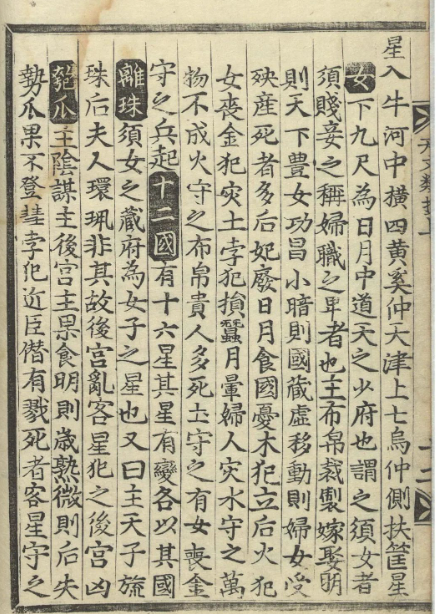 天文類抄上 十二
星入牛河中橫四黃奚仲天津上七烏仲側扶筐星
女下九尺為日月中道天之少府也謂之須女者
須賤妾之稱婦職之卑者也主布帛裁製嫁娶明
則天下豊女功昌小暗則國藏虛移動則婦女受
殃産死者多后妃廢日月食國憂木犯立后火犯
女喪金犯灾土孛犯損蠶月暈婦人灾水守之萬
物不成火守之布帛貴人多死土守之有女喪金
守之兵起十二國有十六星其星有變各以其國
離珠須女之藏府為女子之星也又曰主天子旅
珠后夫人環珮非其故後宮亂客星犯之後宮凶
匏瓜主陰謀主後宮主果食明則歲熟微則后失
勢瓜果不登彗孛犯近臣僭有戮死者客星守之